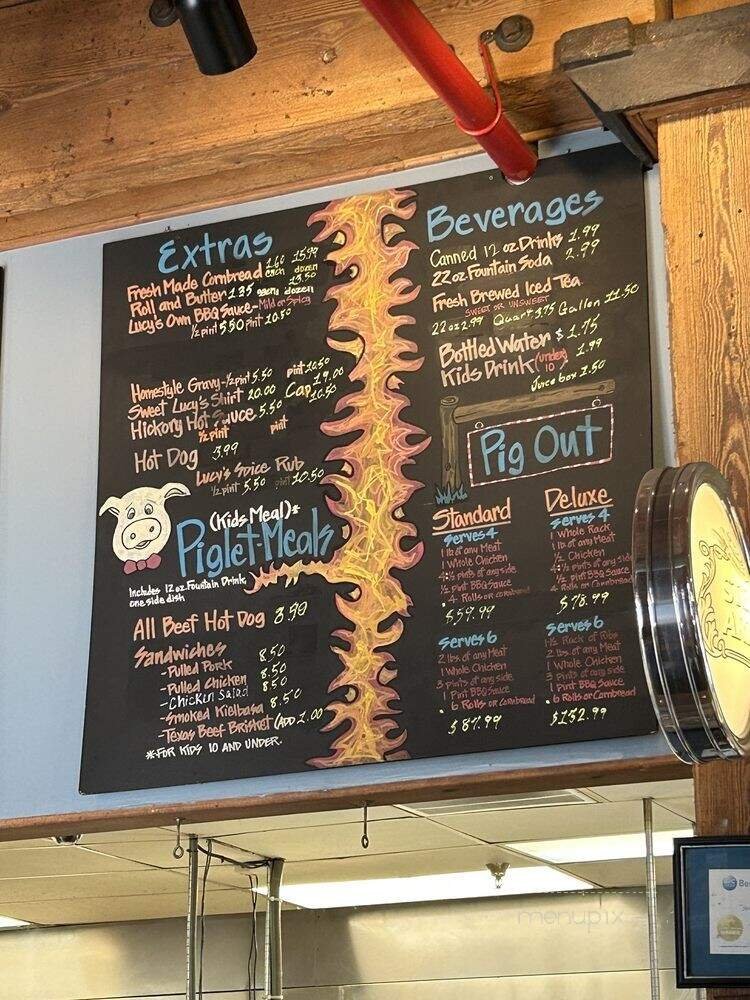 Extras
Fresh Made Cornbread 1.60 each 15.99 dozen
Roll and Butter 1.35 each 13.50 dozen
Lucy's Own BBQ Sauce-Mild or Spicy
1/2 pint 5.50 pint 10.50
Homestyle Gravy-1/2 pint 5.50 pint 10.50
Sweet Lucy's Shirt 20.00 Cap 19.00
Hickory Hot Sauce 5.50 10.50
1/2 pint pint
Hot Dog 3.99
Lucy's Spice Rub
1/2 pint 5.50 pint 10.50
(Kids Meal)*
Piglet-Meals
Includes 12 oz. Fountain Drink,
one side dish
All Beef Hot Dog 8.50
Sandwiches
-Pulled Pork 8.50
-Pulled Chicken 8.50
-Chicken Salad 8.50
-Smoked Kielbasa 8.50
-Texas Beef Brisket (ADD 1.00
*FOR KIDS 10 AND UNDER.
Beverages
Canned 12 oz Drinks 1.99
22 oz Fountain Soda 2.99
Fresh Brewed Iced Tea
SWEET OR UNSWEET
22 oz 2.99 Quart 3.75 Gallon 11.50
Bottled Water $1.75
Kids Drink (under 10) 1.99
Juice box 1.50
Pig Out
Standard
serves 4
1 lb of any Meat
1 Whole Chicken
4 1/2 pints of any side
1/2 pint BBQ Sauce
4 Rolls or cornbread
$59.99
serves 6
2 lbs. of any Meat
1 Whole Chicken
3 pints of any side
1 Pint BBQ Sauce
6 Rolls or Cornbread
$87.99
Deluxe
serves 4
1 Whole Rack
1 lb of any Meat
1/2 Chicken
4 1/2 pints of any side
1/2 pint BBQ Sauce
4 Rolls or Cornbread
$78.99
serves 6
1 1/2 Rack of Ribs
2 lbs. of any Meat
1 Whole Chicken
3 pints of any side
1 Pint BBQ Sauce
6 Rolls or Cornbread
$132.99
menupix